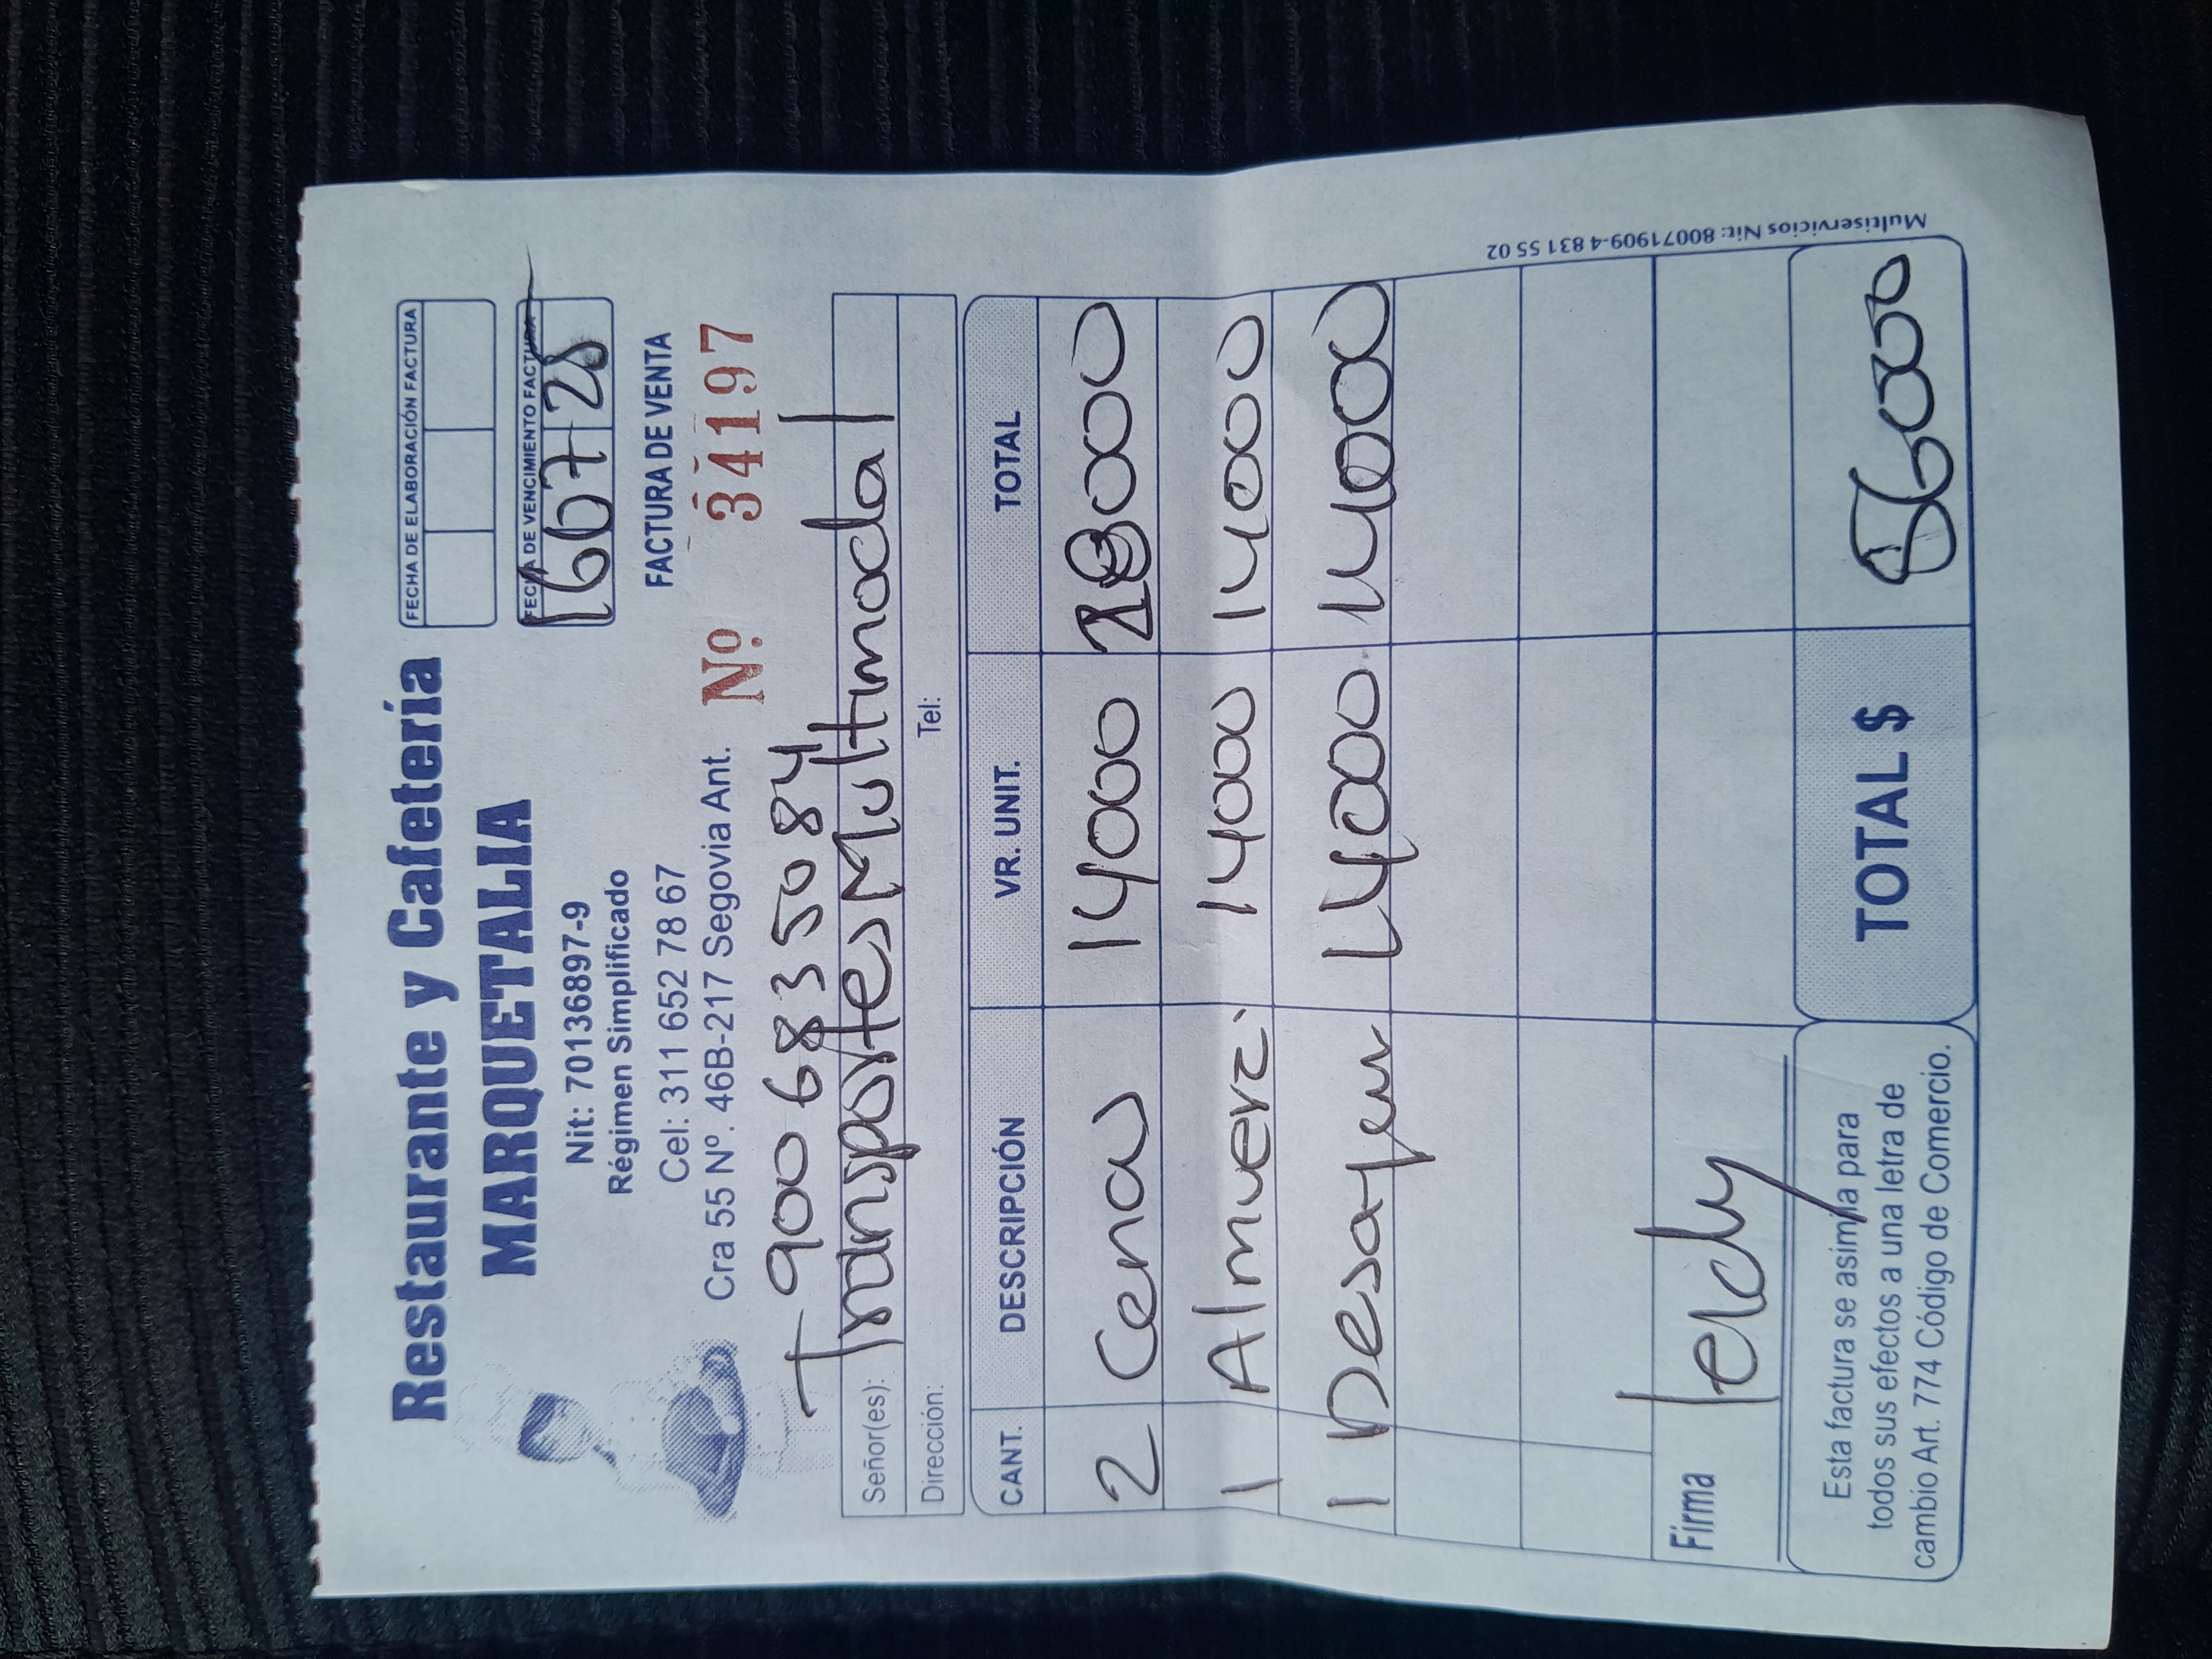 Restaurante y Cafetería
MARQUETALIA
Nit: 70136897-9
Régimen Simplificado
Cel: 311 652 78 67
Cra 55 Nº. 46B-217 Segovia Ant.
FECHA DE ELABORACIÓN FACTURA
FECHA DE VENCIMIENTO FACTURA
16 07 25
FACTURA DE VENTA
Nº 34197
900 683 5084
Señor(es): Transportes Multimodal
Dirección: Tel:
CANT. DESCRIPCIÓN VR. UNIT. TOTAL
2 Cenas 14000 28000
1 Almuerz. 14000 14000
1 Desayun 14000 14000
Firma leidy
Esta factura se asimila para
todos sus efectos a una letra de
cambio Art. 774 Código de Comercio.
TOTAL $ 56000
Multiservicios Nit: 80071909-4 831 55 02